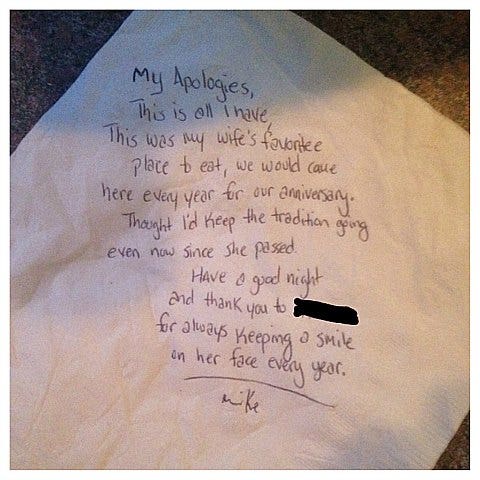 My Apologies,
This is all I have,
This was my wife's favoritee
place to eat, we would come
here every year for our anniversary.
Thought I'd keep the tradition going
even now since she passed.
Have a good night
and thank you to
for always keeping a smile
on her face every year.
mike